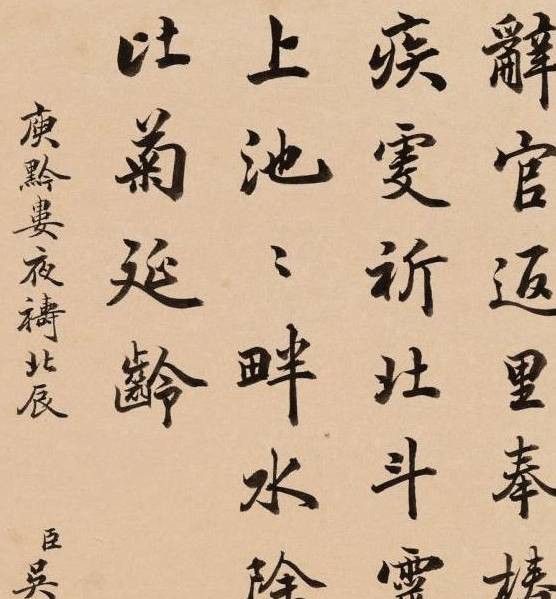 辭官返里奉椿
疾虔祈北斗靈
上池〻畔水除
比菊延齡
庾黔婁夜禱北辰
臣吳